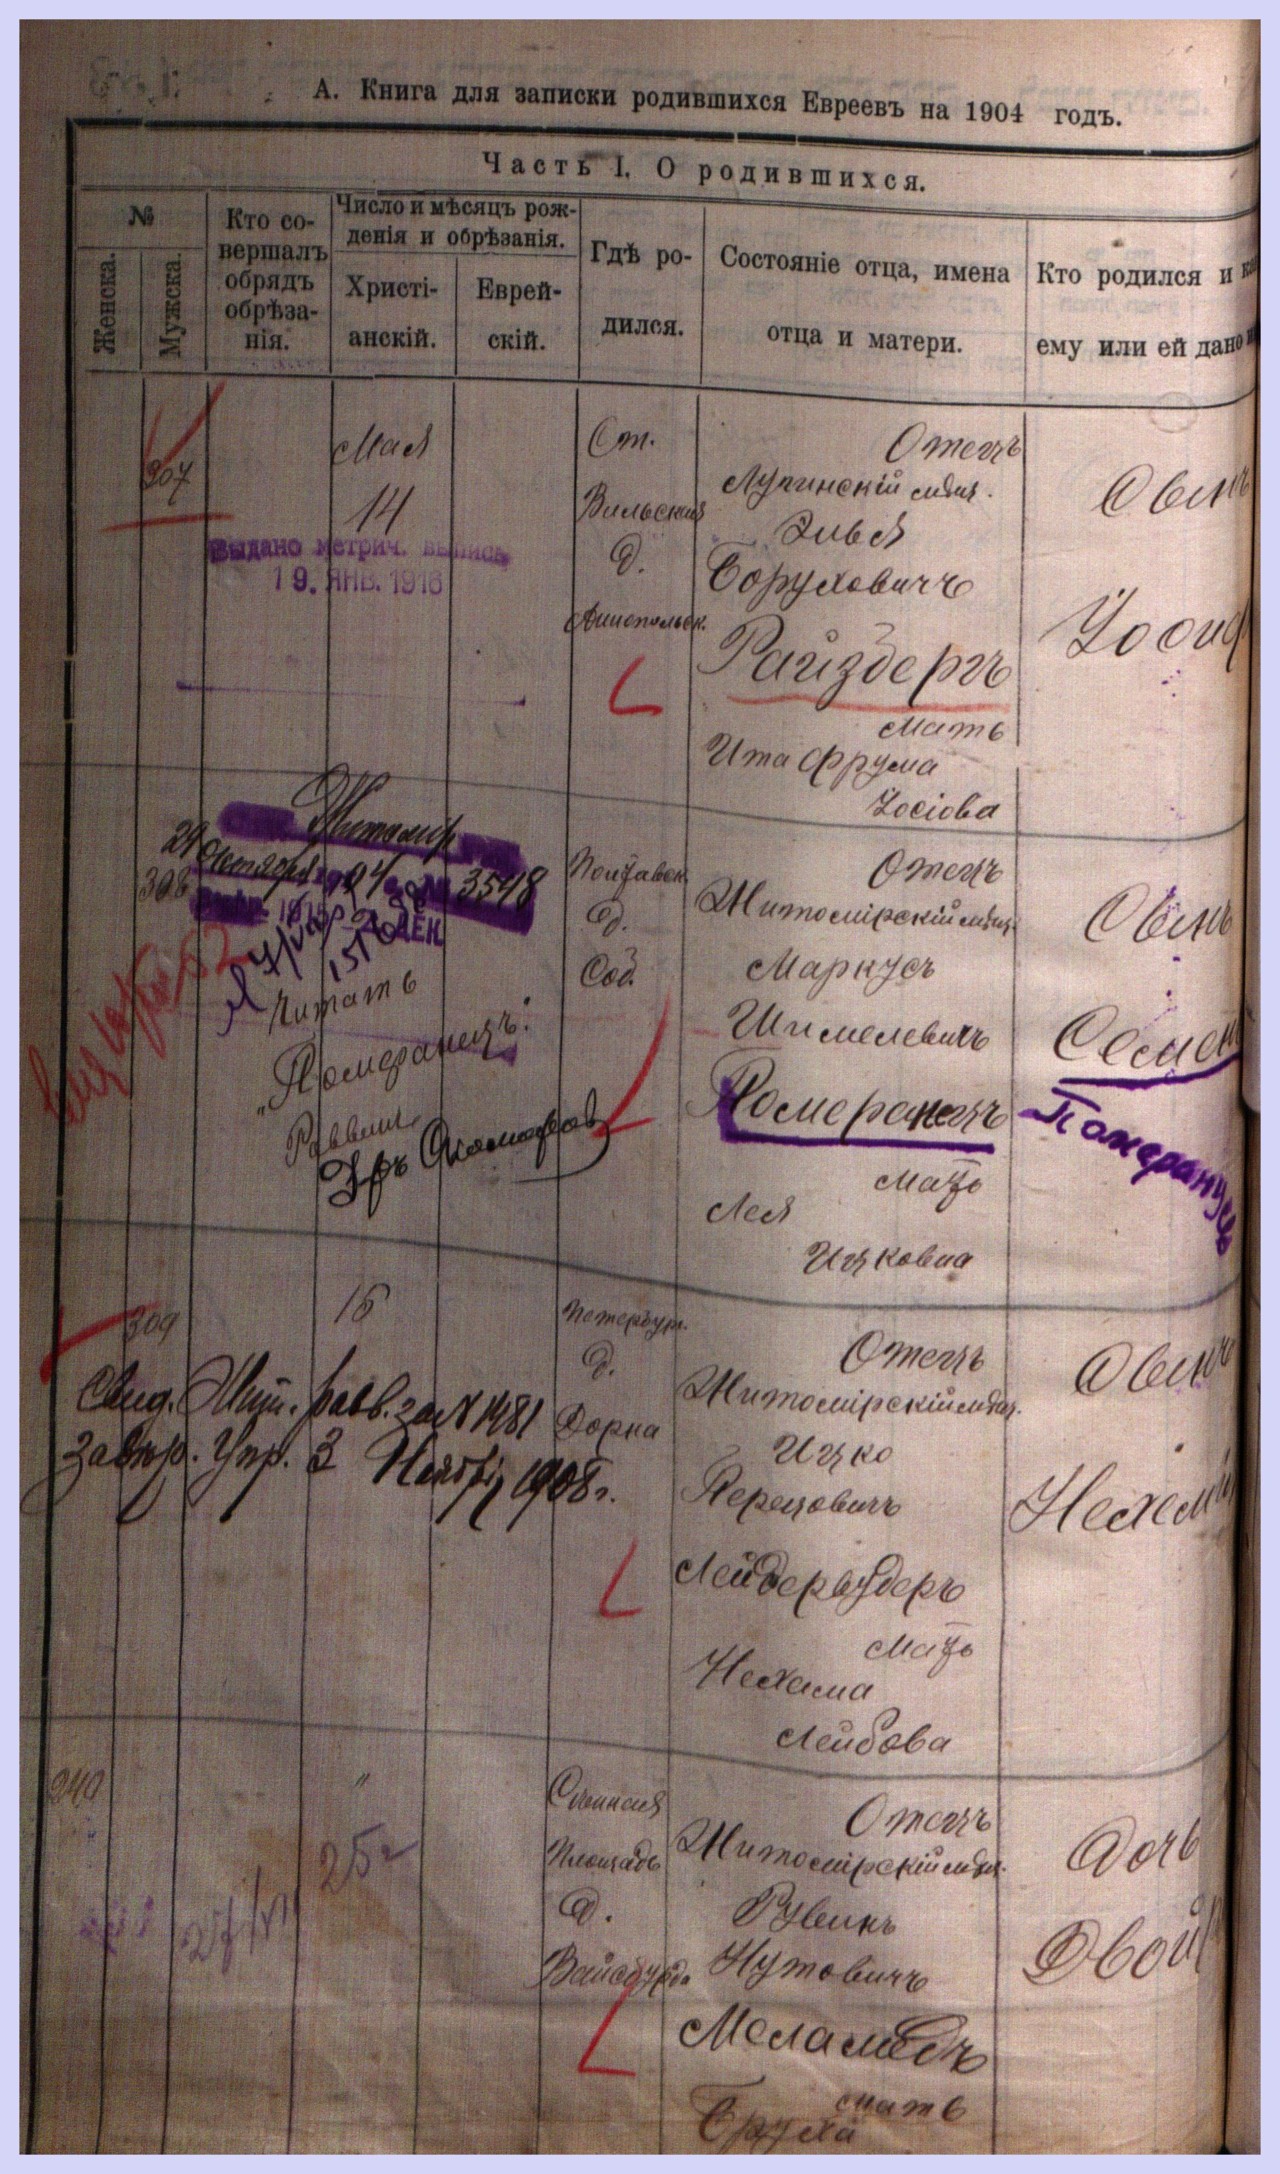 А. Книга для записки родившихся Евреевъ на 1904 годъ.
Часть I. О родившихся.
№
Женска.
Мужска.
Кто со-
вершалъ
обрядъ
обрѣза-
нія.
Число и мѣсяцъ рож-
денія и обрѣзанія.
Христі-
анскій.
Еврей-
скій.
Гдѣ ро-
дился.
Состояніе отца, имена
отца и матери.
Кто родился и
ему или ей дано
307
Мая
14
Выдано метрич. выпись
19. ЯНВ. 1916
Ст.
Вильская
д.
Отецъ
Лугинскій мѣщ.
Элья
Боруховичъ
Райзбергъ
Мать
Ита Фрума
Іосіова
Сынъ
Іосиф
308
Житомир
29 Октября 1904 3548
Читать
"Померанецъ".
Раввин
Полтавск.
д.
Соб.
Отецъ
Житомірскій мѣщ.
Маркусъ
Шимелевичъ
Померанецъ
Мать
Лея
Ицковна
Сынъ
Семен
Померанецъ
309
15
Свид. Жит. равв. за № 1481
Упр. 3 Ноября 1908 г.
Петербург.
д.
Дорна
Отецъ
Житомірскій мѣщ.
Ицко
Перецовичъ
Лейдервудеръ
Мать
Нехама
Лейбова
Сынъ
Нехемі
240
"
25
Сѣнная
Площадь
д.
Вайсбурда
Отецъ
Житомірскій мѣщ.
Рувинъ
Нутовичъ
Меламедъ
Мать
Бруха
Дочь
Двой